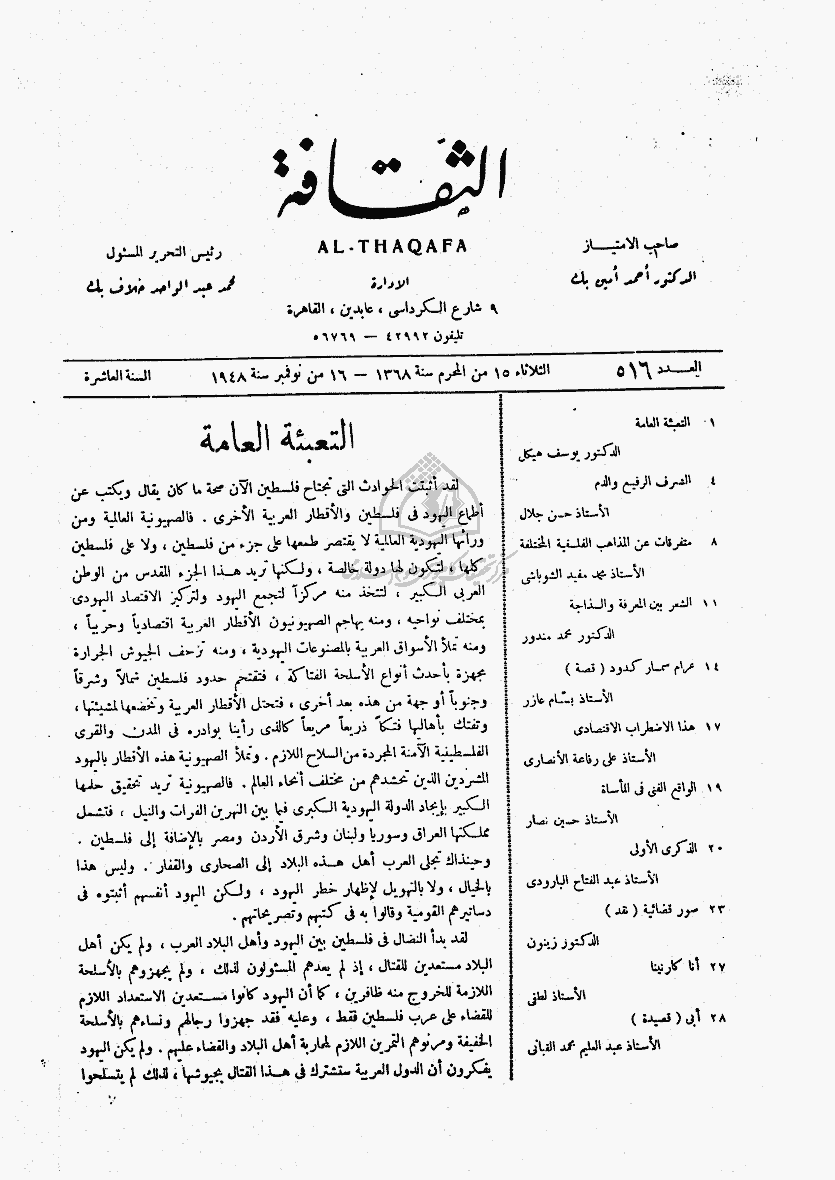 الثقافة
AL-THAQAFA
صاحب الامتياز
الدكتور أحمد أمين بك
رئيس التحرير المسئول
محمد عبد الواحد خلاف بك
الإدارة
٩ شارع الكرداسى ، عابدين ، القاهرة
تليفون ٤٢٩٩٢ — ٥٦٧٦٩
العدد ٥١٦
الثلاثاء ١٥ من المحرم سنة ١٣٦٨ — ١٦ من نوفمبر سنة ١٩٤٨
السنة العاشرة
١ التعبئة العامة
الدكتور يوسف هيكل
٤ الشرف الرفيع والدم
الأستاذ حسن جلال
٨ متفرقات عن المذاهب الفلسفية المختلفة
الأستاذ محمد مفيد الشوباشى
١١ الشعر بين المعرفة والسذاجة
الدكتور محمد مندور
١٤ غرام سمسار كدود ( قصة )
الأستاذ بسام عازر
١٧ هذا الاضطراب الاقتصادى
الأستاذ على رفاعة الأنصارى
١٩ الواقع الفنى فى المأساة
الأستاذ حسين نصار
٢٠ الذكرى الأولى
الأستاذ عبد الفتاح البارودى
٢٣ صور قضائية ( نقد )
الدكتور زينون
٢٧ أنا كارنينا
الأستاذ لطفى
٢٨ أبى ( قصيدة )
الأستاذ عبد العليم محمد القبانى
التعبئة العامة
لقد أثبتت الحوادث التى تجتاح فلسطين الآن صحة ما كان يقال ويكتب عن
أطماع اليهود فى فلسطين والأقطار العربية الأخرى . فالصهيونية العالمية ومن
ورائها اليهودية العالمية لا يقتصر طمعها على جزء من فلسطين ، ولا على فلسطين
كلها ، لتكون لها دولة خالصة ، ولكنها تريد هذا الجزء المقدس من الوطن
العربى الكبير ، لتتخذ منه مركزاً لتجمع اليهود ولتركيز الاقتصاد اليهودى
بمختلف نواحيه ، ومنه يهاجم الصهيونيون الأقطار العربية اقتصادياً وحربياً ،
ومنه تملأ الأسواق العربية بالمصنوعات اليهودية ، ومنه تزحف الجيوش الجرارة
مجهزة بأحدث أنواع الأسلحة الفتاكة ، فتقتحم حدود فلسطين شمالاً وشرقاً
وجنوباً أو جهة من هذه بعد أخرى ، فتحتل الأقطار العربية وتخضعها لمشيئتها ،
وتفتك بأهاليها فتكاً ذريعاً مريعاً كالذى رأينا بوادره فى المدن والقرى
الفلسطينية الآمنة المجردة من السلاح اللازم . وتملأ الصهيونية هذه الأقطار باليهود
المشردين الذين تحشدهم من مختلف أنحاء العالم . فالصهيونية تريد تحقيق حلمها
الكبير بإيجاد الدولة اليهودية الكبرى فيما بين النهرين الفرات والنيل ، فتشمل
مملكتها العراق وسوريا ولبنان وشرق الأردن ومصر بالإضافة إلى فلسطين .
وحينذاك تجلى العرب أهل هذه البلاد إلى الصحارى والقفار . وليس هذا
بالخيال ، ولا بالتهويل لإظهار خطر اليهود ، ولكن اليهود أنفسهم أثبتوه فى
دساتيرهم القومية وقالوا به فى كتبهم وتصريحاتهم .
لقد بدأ النضال فى فلسطين بين اليهود وأهل البلاد العرب ، ولم يكن أهل
البلاد مستعدين للقتال ، إذ لم يعدهم المسئولون لذلك ، ولم يجهزوهم بالأسلحة
اللازمة للخروج منه ظافرين ، كما أن اليهود كانوا مستعدين الاستعداد اللازم
للقضاء على عرب فلسطين فقط ، وعليه فقد جهزوا رجالهم ونساءهم بالأسلحة
الخفيفة ومرنوهم التمرين اللازم لمحاربة أهل البلاد والقضاء عليهم . ولم يكن اليهود
يفكرون أن الدول العربية ستشترك فى هذا القتال بجيوشها ، لذلك لم يتسلحوا